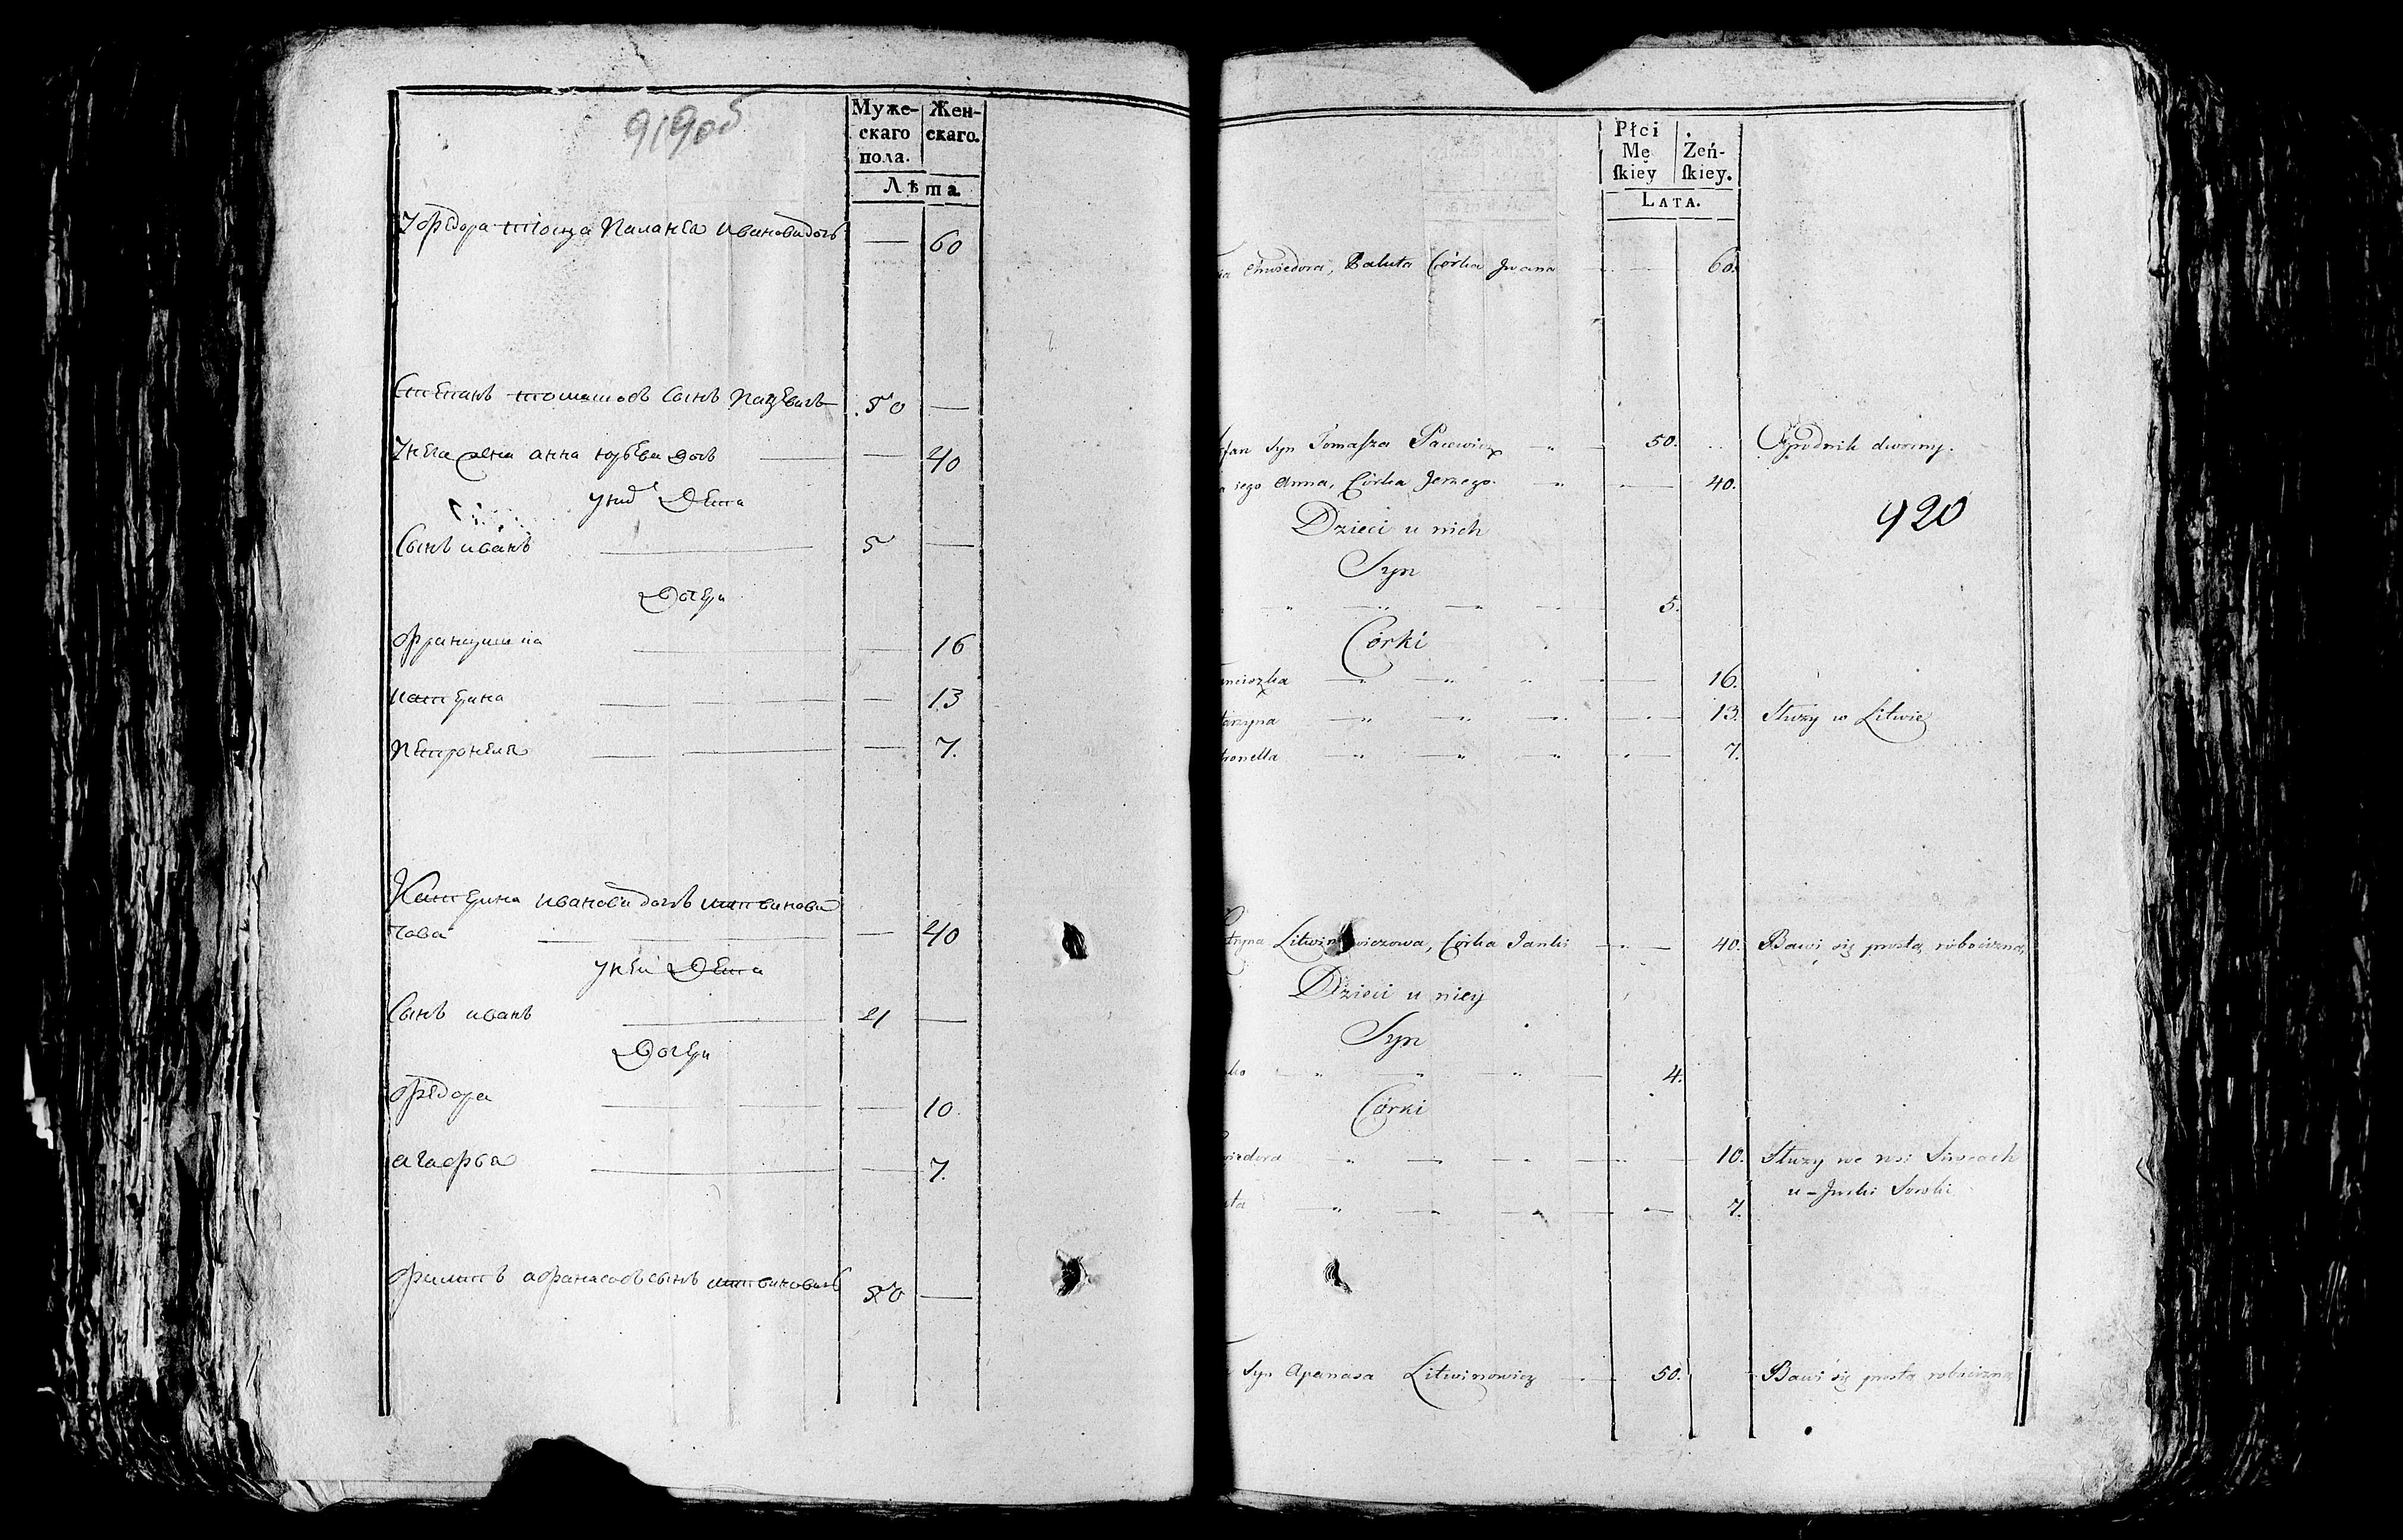 919об
Муже-
скаго
пола.
Жен-
скаго.
Лѣта.
У Федора тіоща Паланея Иванова дочь — 60
Степанъ томашовъ сынъ Пацевичъ 50 —
У него жена анна юрьева дочь — 40
у них дети
Сынъ иванъ 5 —
Дочери
Францишка — 16
катерина — 13
Петронеля — 7.
Катерина иванова дочь литвинови
чова — 40
у неи дети
Сынъ иванъ 4 —
Дочери
Федора — 10.
агафья — 7.
Филипъ афанасовъ сынъ литвиновичъ 50 —
Płci
Mę
skiey
Żeń-
skiey.
LATA.
Chwiedora, Córka Jwana — 60.
fan Syn Tomasza Pacewicz 50. Ogrodnik dworny.
iego Anna, Córka Jerzego — 40.
920
Dzieci u nich
Syn
5.
Córki
nciszka — 16.
tarzyna — 13. Służy w Litwie
tronella — 7.
Córka Janki — 40. Bawi się prostą robocizną,
Dzieci u niey
Syn
ko 4.
Córki
wiedora — 10. Służy we wsi
u
ta — 7.
Syn Apanasa Litwinowicz 50. Bawi się prostą robocizną